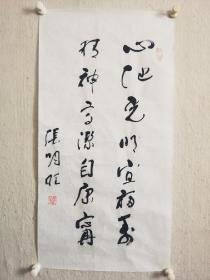 心池光明宜福寿
精神高洁自康宁
张明旺